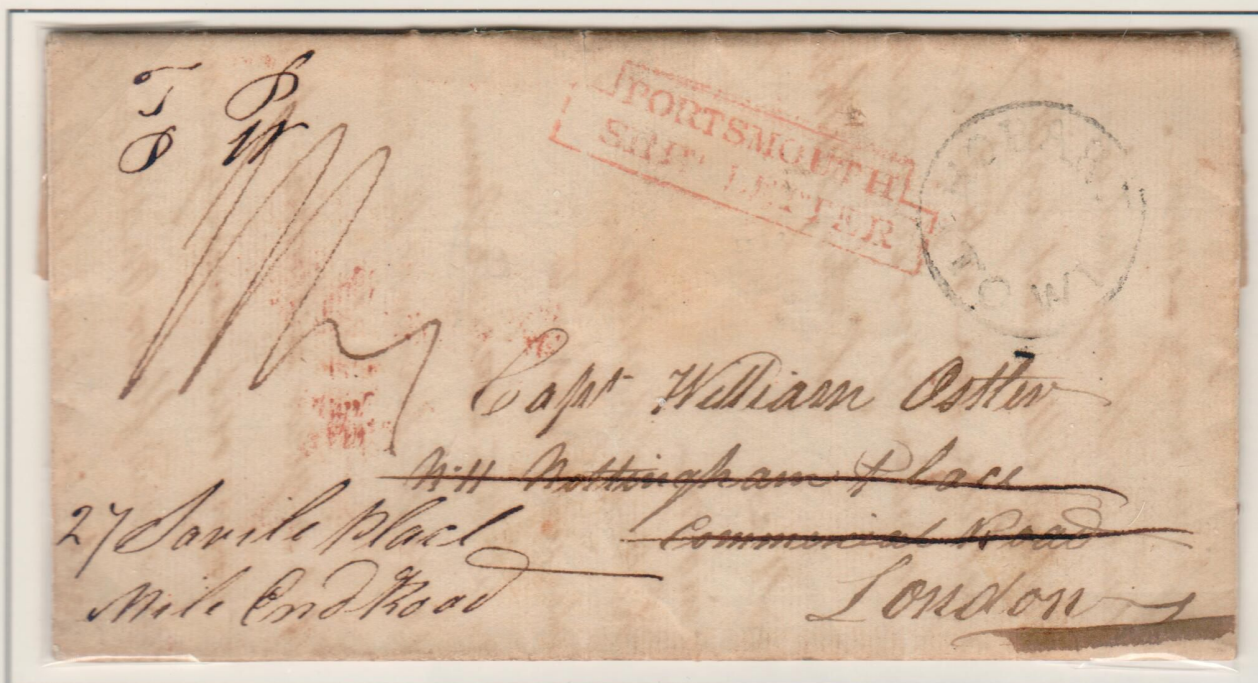 T P
P W
PORTSMOUTH
SHIP LETTER
HOBART
TOWN
Capt William Ostler
No 11 Nottingham Place
Commercial Road
London
27 Savile Place
Mile End Road